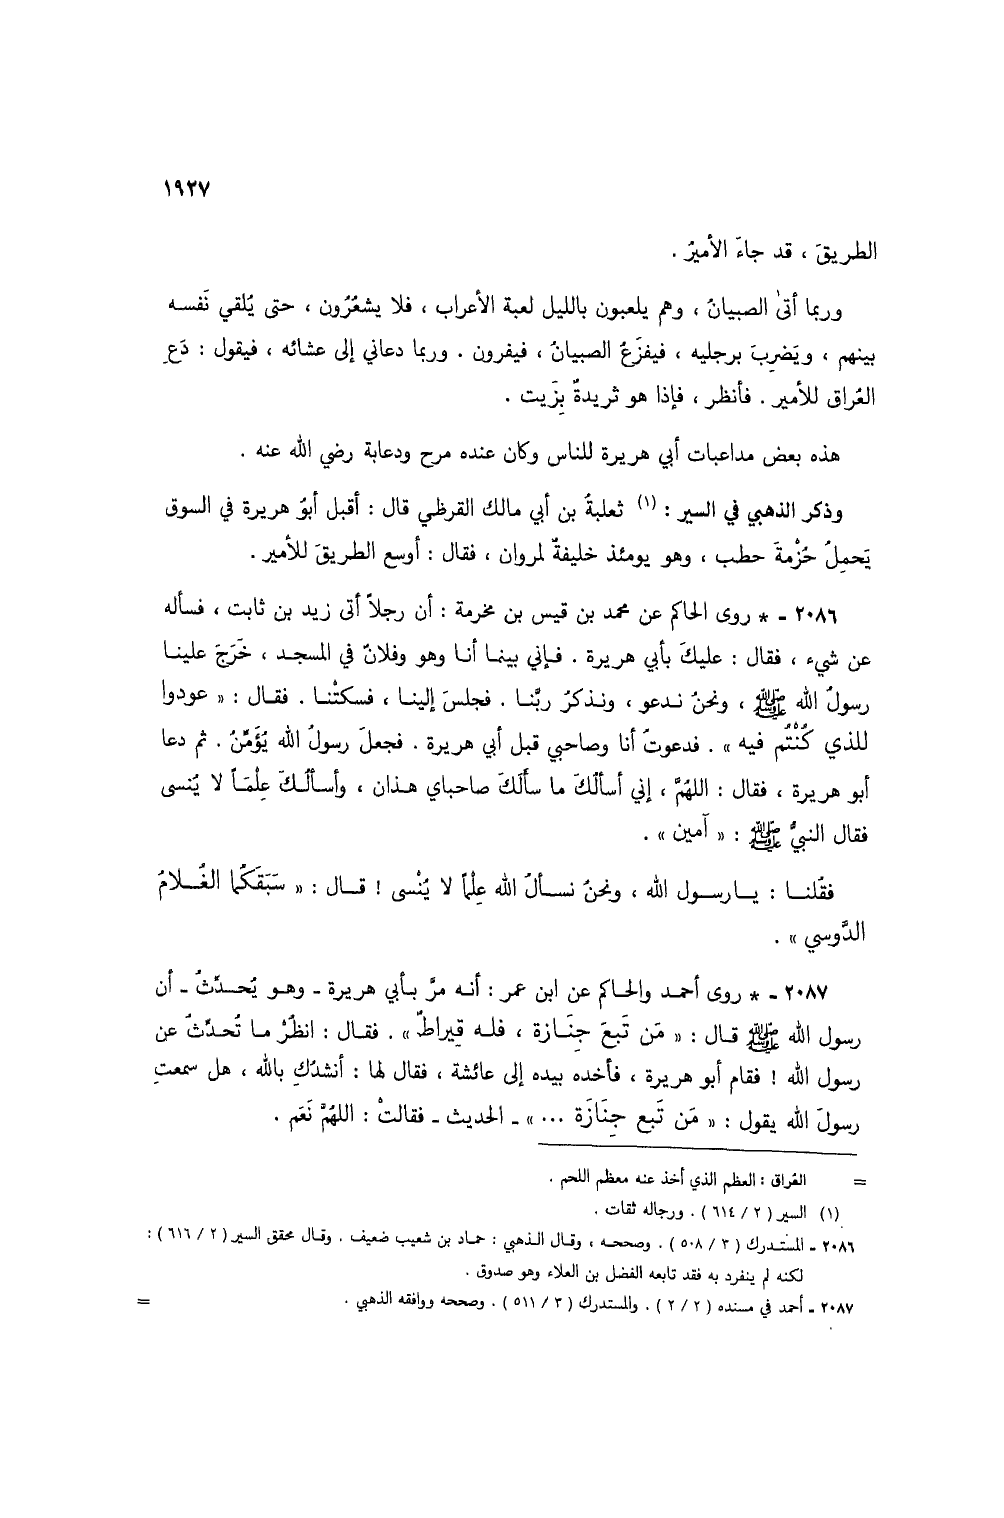 ١٩٢٧
الطريقَ ، قد جاءَ الأميرُ .
وربما أتىٰ الصبيانُ ، وهم يلعبون بالليل لعبة الأعراب ، فلا يشعُرُون ، حتى يُلقي نَفسـه
بينهم ، ويَضرِبَ برجليه ، فيفزَعُ الصبيانُ ، فيفرون . وربما دعاني إلى عشائه ، فيقول : دَعِ
العُراق للأمير . فأنظر ، فإذا هو ثريدةٌ بِزَيت .
هذه بعض مداعبات أبي هريرة للناس وكان عنده مرح ودعابة رضي الله عنه .
وذكر الذهبي في السير : (١) ثعلبةُ بن أبي مالك القرظي قال : أقبل أبوُ هريرة في السوق
يَحمِلُ حُزْمةَ حطب ، وهو يومئذ خليفةٌ لمروان ، فقال : أوسع الطريقَ للأمير .
٢٠٨٦ - * روى الحاكم عن محمد بن قيس بن مخرمة : أن رجلاً أتى زيد بن ثابت ، فسأله
عن شيء ، فقال : عليكَ بأبي هريرة . فـإني بينمـا أنـا وهو وفلانٌ في المسجـد ، خَرَجَ علينـا
رسولُ الله ﷺ ، ونحنُ نـدعو ، ونـذكرُ ربَّنـا . فجلسَ إلينـا ، فسكتْنـا . فقـال : « عودوا
للذي كُنْتُم فيه » . فدعوتُ أنا وصاحبي قبل أبي هريرة . فجعلَ رسولُ الله يُؤَمِّنُ . ثم دعا
أبو هريرة ، فقال : اللهُمَّ ، إني أسألُكَ ما سأَلَكَ صاحباي هـذان ، وأسـألُـكَ عِلْمَـاً لا يُنسى
فقال النبيُّ ﷺ : « آمين » .
فقُلنـا : يـارسـول الله ، ونحنُ نسـألُ الله عِلْمًا لا يُنْسى ! قـال : « سَبَقَكُما الغُـلامُ
الدَّوسي » .
٢٠٨٧ - * روى أحمـد والحـاكم عن ابن عمر : أنـه مرَّ بـأبي هريرة ـ وهـو يُحـدِّثُ ـ أن
رسول الله ﷺ قـال : « مَن تَبعَ جِنَـازة ، فلـه قيراطٌ » . فقـال : انظُرْ مـا تُحدِّثُ عن
رسول الله ! فقام أبو هريرة ، فأخذه بيده إلى عائشة ، فقال لها : أنشدُكِ بالله ، هل سمعتِ
رسولَ الله يقول : « مَن تَبع جِنَازَة ... » ـ الحديث ـ فقالتْ : اللهُمَّ نَعَم .
= العُراق : العظم الذي أخذ عنه معظم اللحم .
(١) السير ( ٢ / ٦١٤ ) . ورجاله ثقات .
٢٠٨٦ - المستـدرك ( ٣ / ٥٠٨ ) . وصححـه ، وقال الـذهبي : حماد بن شعيب ضعيف . وقال محقق السير ( ٢ / ٦١٦ ) :
لكنه لم ينفرد به فقد تابعه الفضل بن العلاء وهو صدوق .
٢٠٨٧ - أحمد في مسنده ( ٢ / ٢ ) . والمستدرك ( ٣ / ٥١١ ) . وصححه ووافقه الذهبي . =